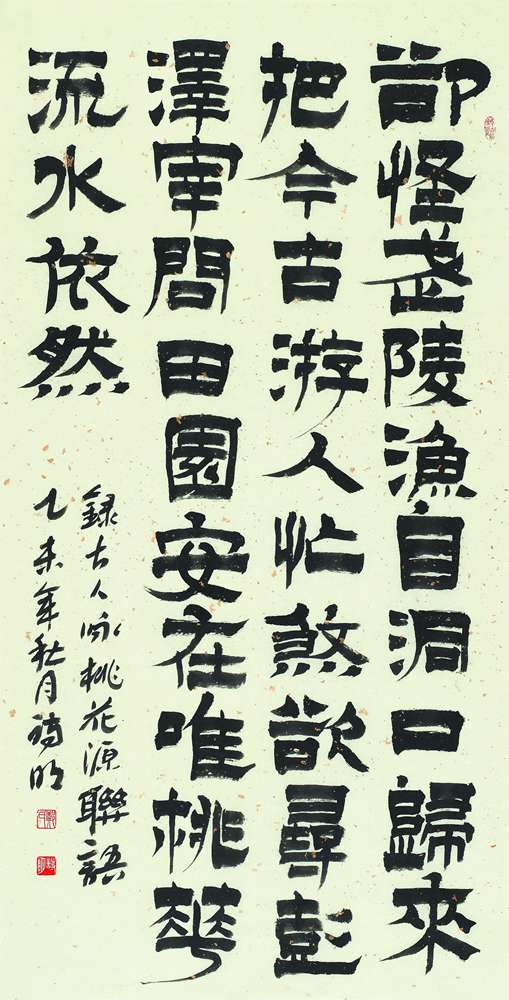 卻怪武陵漁自洞口歸來
把今古游人忙煞欲尋彭
澤宰問田園安在唯桃華
流水依然
錄古人詠桃花源聯語
乙未年秋月